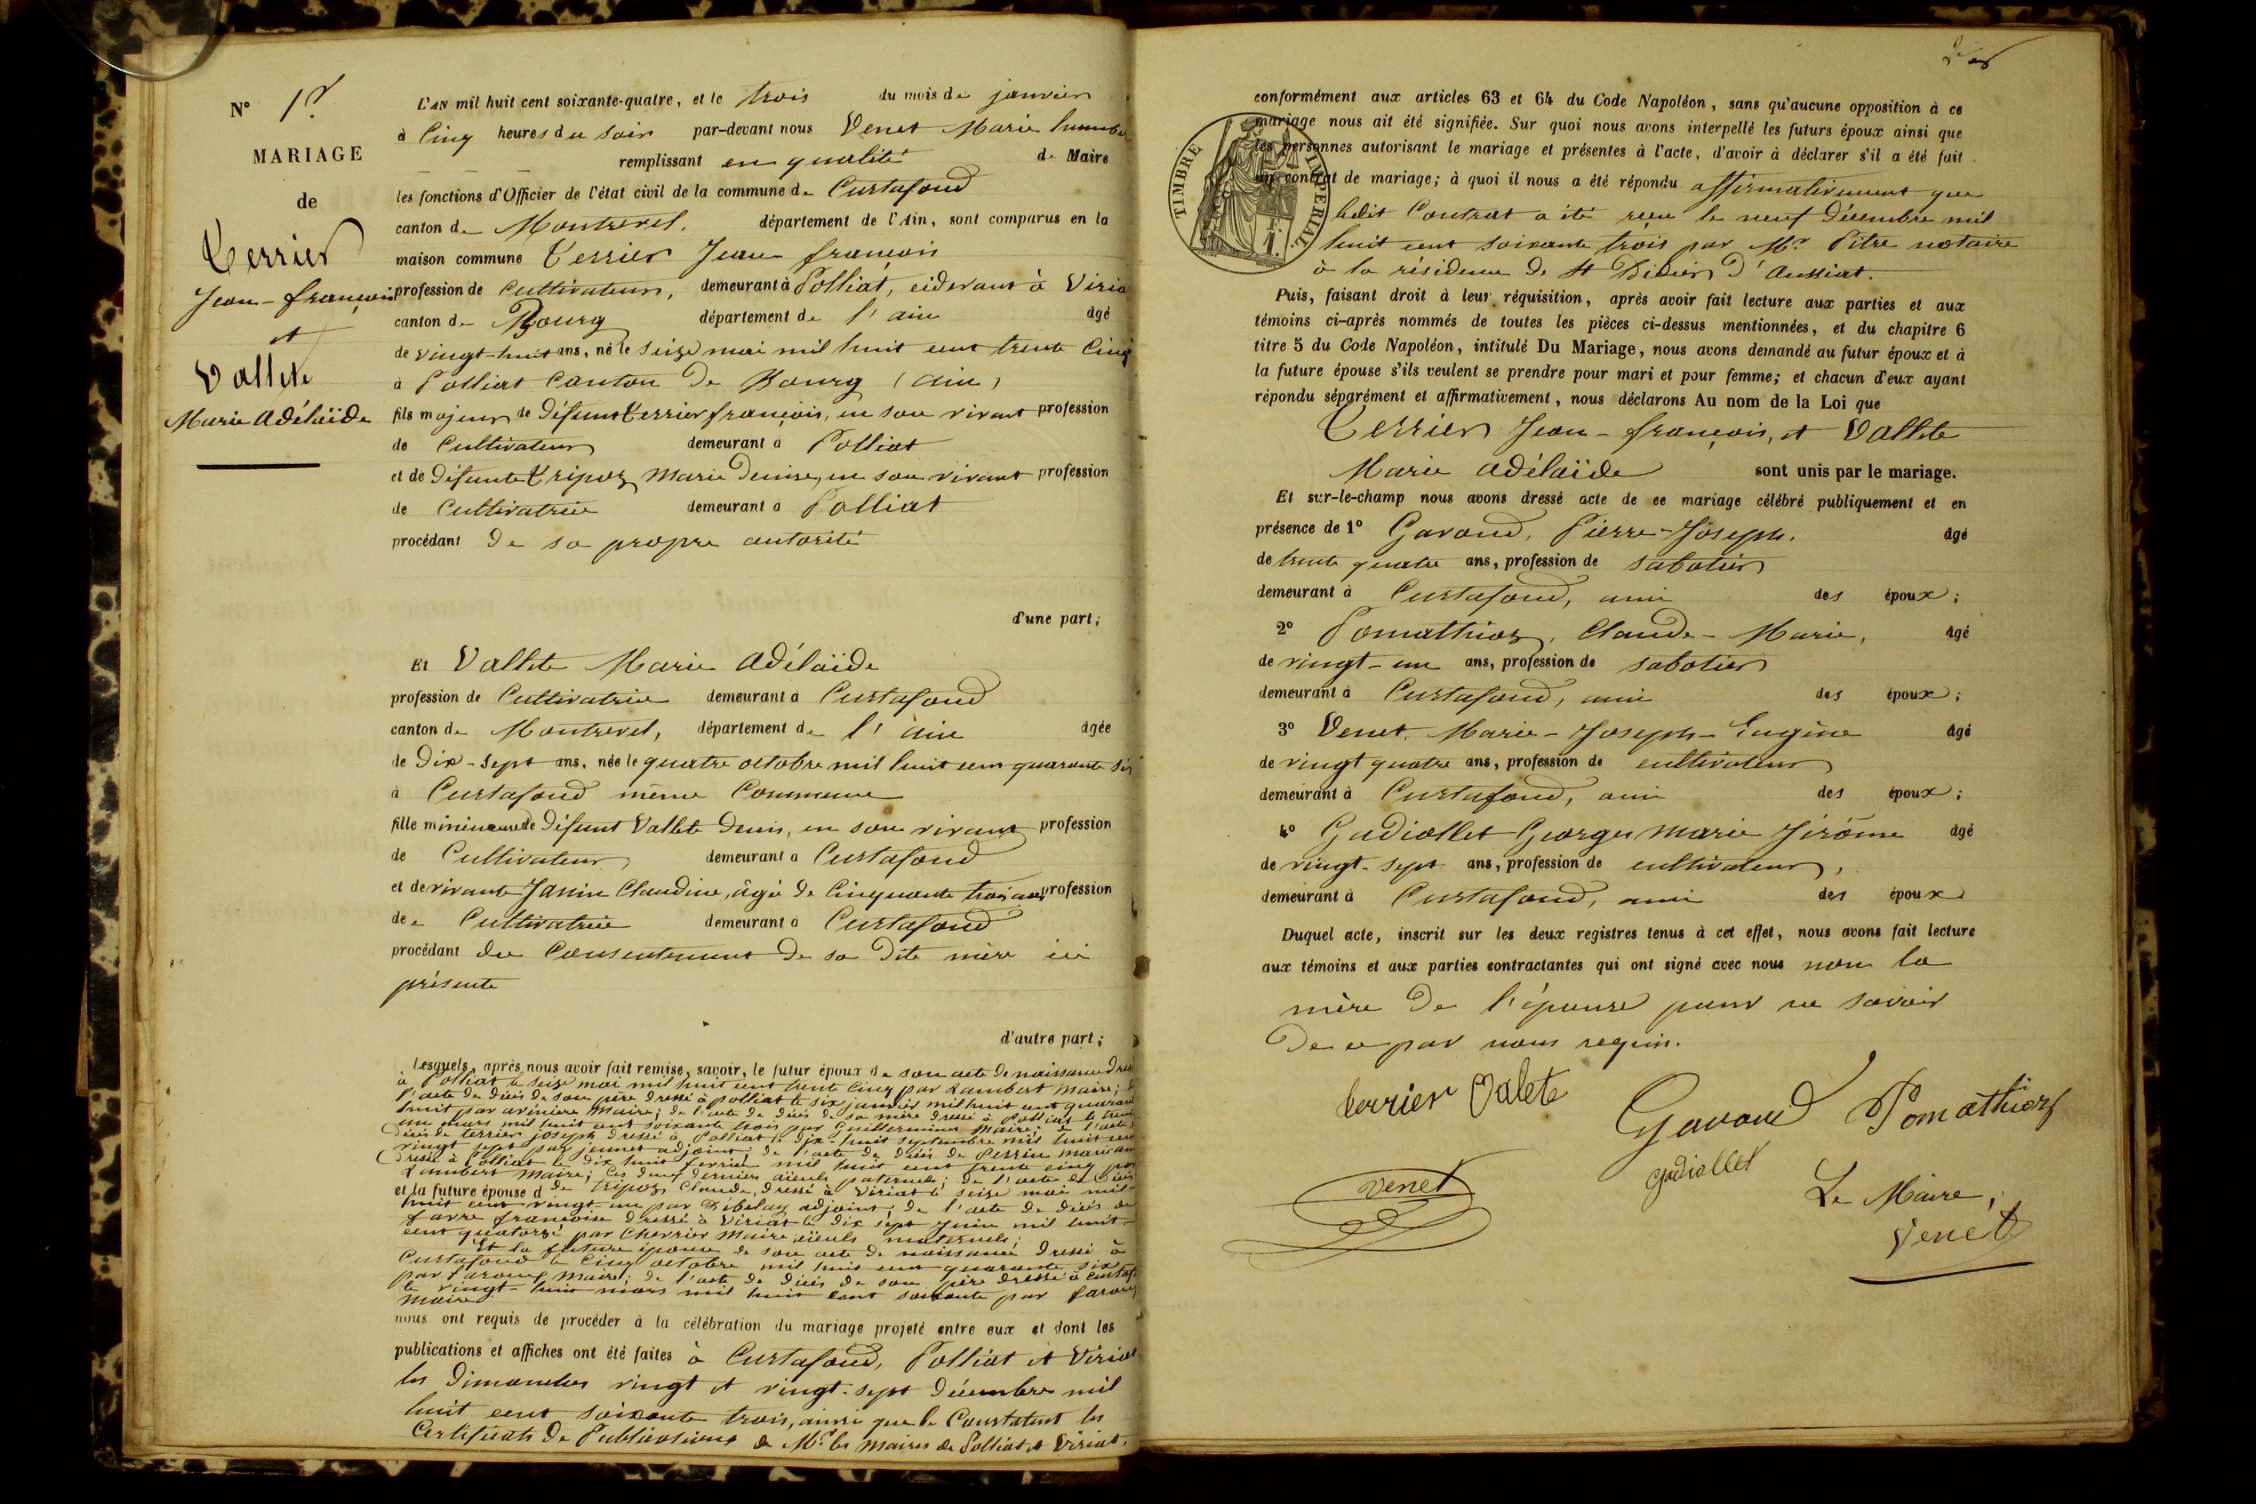 N° 1er
MARIAGE
de
Terrier
Jean-françois
et
Vallete
Marie Adélaïde
L'AN mil huit cent soixante-quatre, et le trois du mois de janvier
à Cinq heures du soir par-devant nous Venet Marie
remplissant en qualité de Maire
les fonctions d'Officier de l'état civil de la commune de Curtafond
canton de Montrevel, département de l'Ain, sont comparus en la
maison commune Terrier Jean françois
profession de Cultivateur, demeurant à Polliat, cidevant à Viria
canton de Bourg département de l'ain âgé
de vingt-huit ans, né le seize mai mil huit cent trente Cinq
à Polliat Canton de Bourg (ain)
fils majeur de défunt Terrier françois, en son vivant profession
de Cultivateur demeurant à Polliat
et de défunte Tripoz Marie Denise, en son vivant profession
de Cultivatrice demeurant à Polliat
procédant de sa propre autorité
d'une part;
Et Vallete Marie Adélaïde
profession de Cultivatrice demeurant à Curtafond
canton de Montrevel, département de l'ain âgée
de Dix-sept ans, née le quatre octobre mil huit cent quarante six
à Curtafond même Commune
fille mineure de défunt Vallete Denis, en son vivant profession
de Cultivateur demeurant à Curtafond
et de vivante Janin Claudine, âgée de Cinquante trois ans profession
de Cultivatrice demeurant à Curtafond
procédant du Consentement de sa dite mère ici
présente
d'autre part;
Lesquels, après nous avoir fait remise, savoir, le futur époux de son acte de naissance
à Polliat le seize mai mil huit cent trente Cinq par Lambert Maire;
l'acte de décès de son père dressé à polliat le six janvier mil huit cent
huit par Maire; de l'acte de décès de sa mère dressé à Polliat le
un mars mil huit cent soixante trois par Guillermin Maire; de l'acte
décès de terrier joseph dressé à Polliat le dix-huit septembre mil huit cent
vingt sept par jeunet adjoint; de l'acte de décès de Perrin
dressé à Polliat le dix huit février mil huit cent trente cinq par
Lambert Maire; Ces deux derniers aïeuls paternels; de l'acte de décès
et la future épouse d de Tripoz Claude, dressé à Viriat le seize mai mil
huit cent vingt-un par adjoint; de l'acte de décès de
favre françoise dressé à Viriat le dix sept juin mil huit
cent quatorze par Chevrier Maire, aïeuls maternels;
Et la future épouse de son acte de naissance dressé à
Curtafond le Cinq octobre mil huit cent quarante six
par Maire; de l'acte de décès de son père dressé à
le vingt-huit mars mil huit cent soixante par
maire
nous ont requis de procéder à la célébration du mariage projeté entre eux et dont les
publications et affiches ont été faites à Curtafond, Polliat et Viriat
les Dimanches vingt et vingt-sept décembre mil
huit cent soixante trois, ainsi que le Constatent les
Certificats de Publications de Mrs les maires de Polliat et Viriat.
TIMBRE IMPÉRIAL
conformément aux articles 63 et 64 du Code Napoléon, sans qu'aucune opposition à ce
mariage nous ait été signifiée. Sur quoi nous avons interpellé les futurs époux ainsi que
les personnes autorisant le mariage et présentes à l'acte, d'avoir à déclarer s'il a été fait
un contrat de mariage; à quoi il nous a été répondu affirmativement que
ledit Contrat a été reçu le neuf décembre mil
huit cent soixante trois par Mr Pitre notaire
à la résidence de St Didier d'Aussiat.
Puis, faisant droit à leur réquisition, après avoir fait lecture aux parties et aux
témoins ci-après nommés de toutes les pièces ci-dessus mentionnées, et du chapitre 6
titre 5 du Code Napoléon, intitulé Du Mariage, nous avons demandé au futur époux et à
la future épouse s'ils veulent se prendre pour mari et pour femme; et chacun d'eux ayant
répondu séparément et affirmativement, nous déclarons Au nom de la Loi que
Terrier Jean-françois, et Vallete
Marie Adélaïde sont unis par le mariage.
Et sur-le-champ nous avons dressé acte de ce mariage célébré publiquement et en
présence de 1° Gavand, Pierre-Joseph. âgé
de trente quatre ans, profession de sabotier
demeurant à Curtafond, ami des époux;
2° Pomathioz, Claude-Marie, âgé
de vingt-un ans, profession de sabotier
demeurant à Curtafond, ami des époux;
3° Venet Marie-Joseph-Eugène âgé
de vingt quatre ans, profession de cultivateur
demeurant à Curtafond, ami des époux;
4° Gudiollet Georges Marie Jérôme âgé
de vingt-sept ans, profession de cultivateur,
demeurant à Curtafond, ami des époux
Duquel acte, inscrit sur les deux registres tenus à cet effet, nous avons fait lecture
aux témoins et aux parties contractantes qui ont signé avec nous non la
mère de l'épouse pour ne savoir
de ce par nous requis.
terrier Valete
Gavand Pomathioz
Venet
gudiollet
Le Maire,
Venet